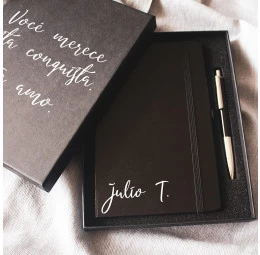 Você merece
ta conquista.
amo.
julio T.